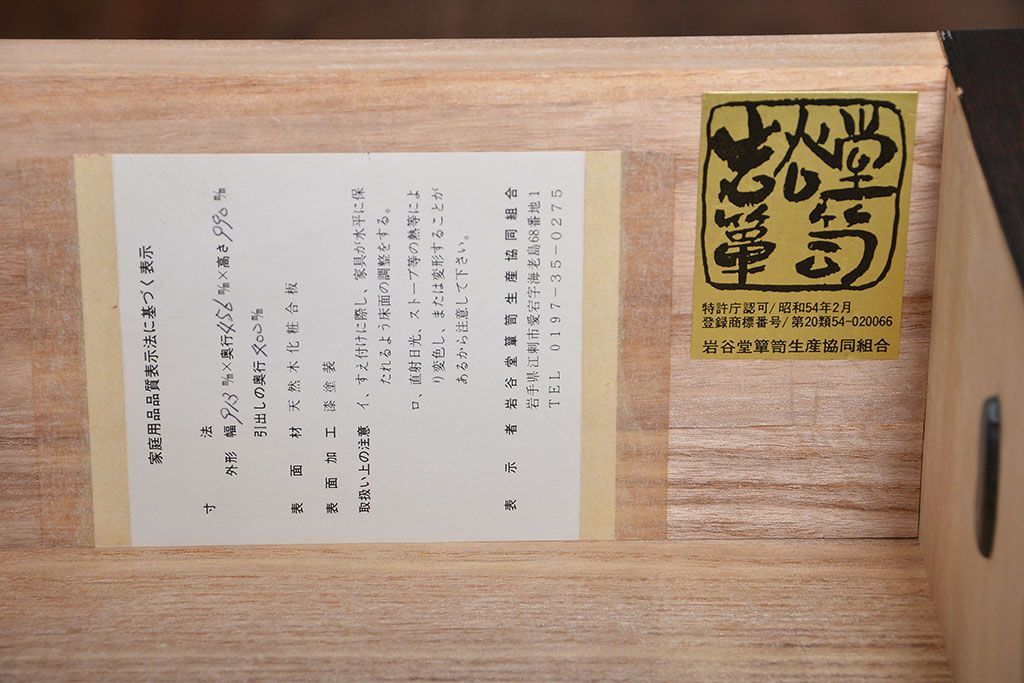 家庭用品品質表示法に基づく表示
寸法
外形 幅913㎜×奥行456㎜×高さ990㎜
引出しの奥行400㎜
表面材 天然木化粧合板
表面加工 漆塗装
取扱い上の注意 イ、すえ付けに際し、家具が水平に保
たれるよう床面の調整をする。
ロ、直射日光、ストーブ等の熱等によ
り変色し、または変形することが
あるから注意して下さい。
表示者 岩谷堂簞笥生産協同組合
岩手県江刺市愛宕字海老島68番地1
TEL 0197-35-0275
岩谷堂
簞笥
特許庁認可/昭和54年2月
登録商標番号/第20類54-020066
岩谷堂簞笥生産協同組合